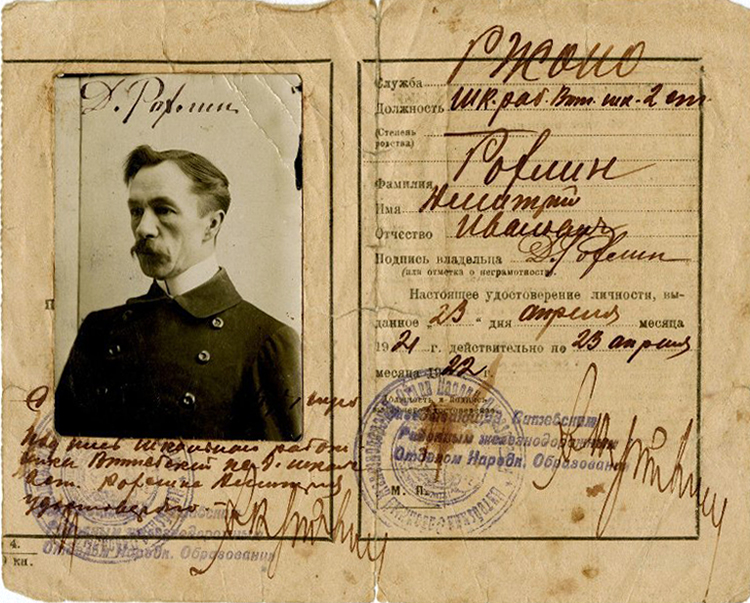 Д. Рофлин
Служба РЖОНО
Должность Шк. раб. Вит. шк. 2 ст.
(Степень
родства)
Фамилия Рофлин
Имя Дмитрий
Отчество Иванович
Подпись владельца Д. Рофлин
(или отметка о неграмотности).
Настоящее удостоверение личности, вы-
данное 23 " дня апреля месяца
1921 г. действительно по 23 апреля
месяца 1922 г.
Должность и подпись
Заведывающий Витебским
Районным железнодорожным
Отделом Народн. Образования
М. П.
Подпись школьного работ
ника Витебской
ст. Рофлина Дмитрия
удостоверяю.
Районным железнодорожным
Отделом Народн. Образования
4.